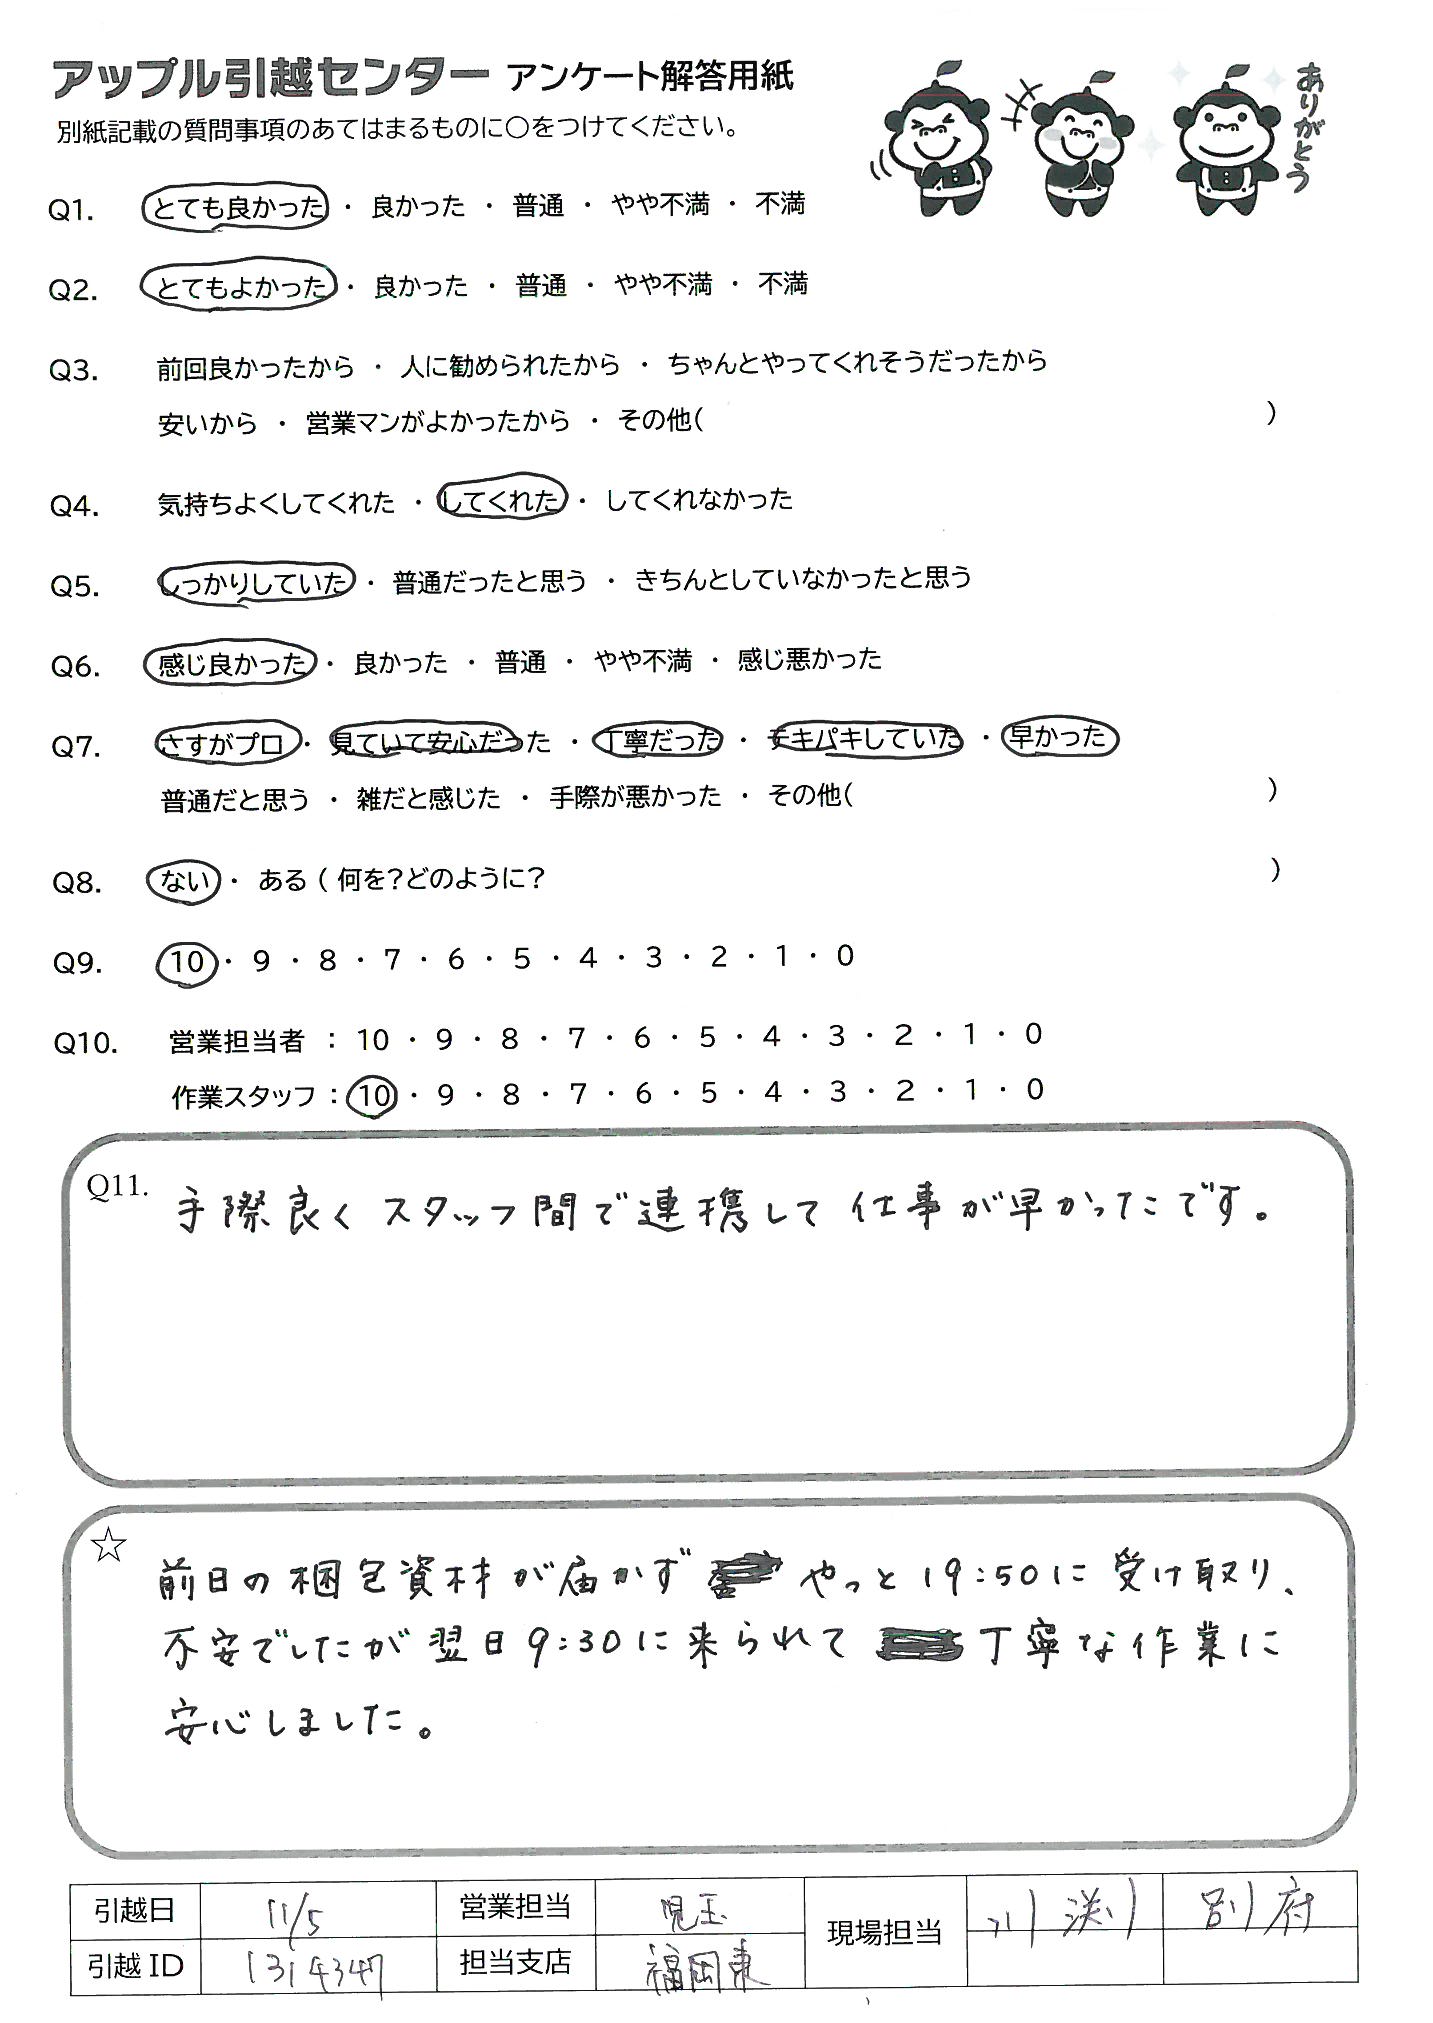 アップル引越センター アンケート解答用紙
ありがとう
別紙記載の質問事項のあてはまるものに○をつけてください。
Q1. とても良かった ・ 良かった ・ 普通 ・ やや不満 ・ 不満
Q2. とてもよかった ・ 良かった ・ 普通 ・ やや不満 ・ 不満
Q3. 前回良かったから ・ 人に勧められたから ・ ちゃんとやってくれそうだったから
安いから ・ 営業マンがよかったから ・ その他( )
Q4. 気持ちよくしてくれた ・ してくれた ・ してくれなかった
Q5. しっかりしていた ・ 普通だったと思う ・ きちんとしていなかったと思う
Q6. 感じ良かった ・ 良かった ・ 普通 ・ やや不満 ・ 感じ悪かった
Q7. さすがプロ ・ 見ていて安心だった ・ 丁寧だった ・ テキパキしていた ・ 早かった
普通だと思う ・ 雑だと感じた ・ 手際が悪かった ・ その他( )
Q8. ない ・ ある ( 何を?どのように? )
Q9. 10 ・ 9 ・ 8 ・ 7 ・ 6 ・ 5 ・ 4 ・ 3 ・ 2 ・ 1 ・ 0
Q10. 営業担当者 : 10 ・ 9 ・ 8 ・ 7 ・ 6 ・ 5 ・ 4 ・ 3 ・ 2 ・ 1 ・ 0
作業スタッフ : 10 ・ 9 ・ 8 ・ 7 ・ 6 ・ 5 ・ 4 ・ 3 ・ 2 ・ 1 ・ 0
Q11. 手際良くスタッフ間で連携して仕事が早かったです。
☆ 前日の梱包資材が届かず やっと19:50に受け取り、
不安でしたが翌日9:30に来られて 丁寧な作業に
安心しました。
引越日 11/5 営業担当 児玉 現場担当 別府
引越ID 1314347 担当支店 福岡東